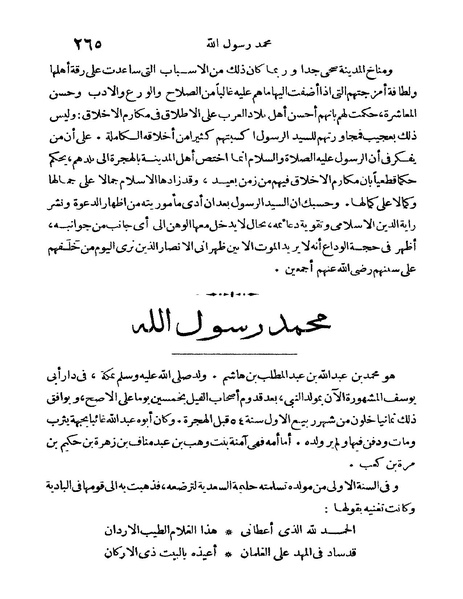 محمد رسول الله ٢٦٥
ومناخ المدينة صحى جدا وربما كان ذلك من الاسباب التى ساعدت على رقة أهلها
ولطافة أمزجتهم التى اذا أضفت اليها ما هم عليه غالباً من الصلاح والورع والادب وحسن
المعاشرة، حكمت لهم بانهم أحسن أهل بلاد العرب على الاطلاق فى مكارم الاخلاق: وليس
ذلك بعجيب فمجاورتهم للسيد الرسول اكسبتهم كثيرا من أخلاقه الكاملة . على أن من
يفكر فى أن الرسول عليه الصلاة والسلام انما اختص أهل المدينة بالهجرة الى بلدهم، يحكم
حكما قطعياً بان مكارم الاخلاق فيهم من زمن بعيد، وقد زادها الاسلام جمالا على جمالها
وكمالا على كمالها. وحسبك ان السيد الرسول بعد ان أدى مأموريته من اظهار الدعوة ونشر
راية الدين الاسلامى وتقوية دعائمه، بحال لا يدخل معها الوهن الى أى جانب من جوانبه،
أظهر فى حجة الوداع أنه لا يريد الموت الا بين ظهرانى الانصار الذين نرى اليوم من خلفهم
على سننهم رضى الله عنهم أجمعين .
محمد رسول الله
هو محمد بن عبد الله بن عبد المطلب بن هاشم . ولد صلى الله عليه وسلم بمكة، فى دار أبى
يوسف المشهورة الآن بمولد النبى، بعد قدوم أصحاب الفيل بخمسين يوما على الاصح، ويوافق
ذلك ثمانيا خلون من شهر ربيع الاول سنة ٥٤ قبل الهجرة. وكان أبوه عبد الله غائبا بجهة يثرب
ومات ودفن فيها ولم ير ولده. أما أمه فهى آمنة بنت وهب بن عبد مناف بن زهرة بن حكيم بن
مرة بن كعب .
وفى السنة الاولى من مولده تسلمته حليمة السعدية لترضعه، فذهبت به الى قومها فى البادية
وكانت تغنيه بقولها :
الحمد لله الذى أعطانى * هذا الغلام الطيب الاردان
قد ساد فى المهد على الغلمان * أعيذه بالبيت ذى الاركان